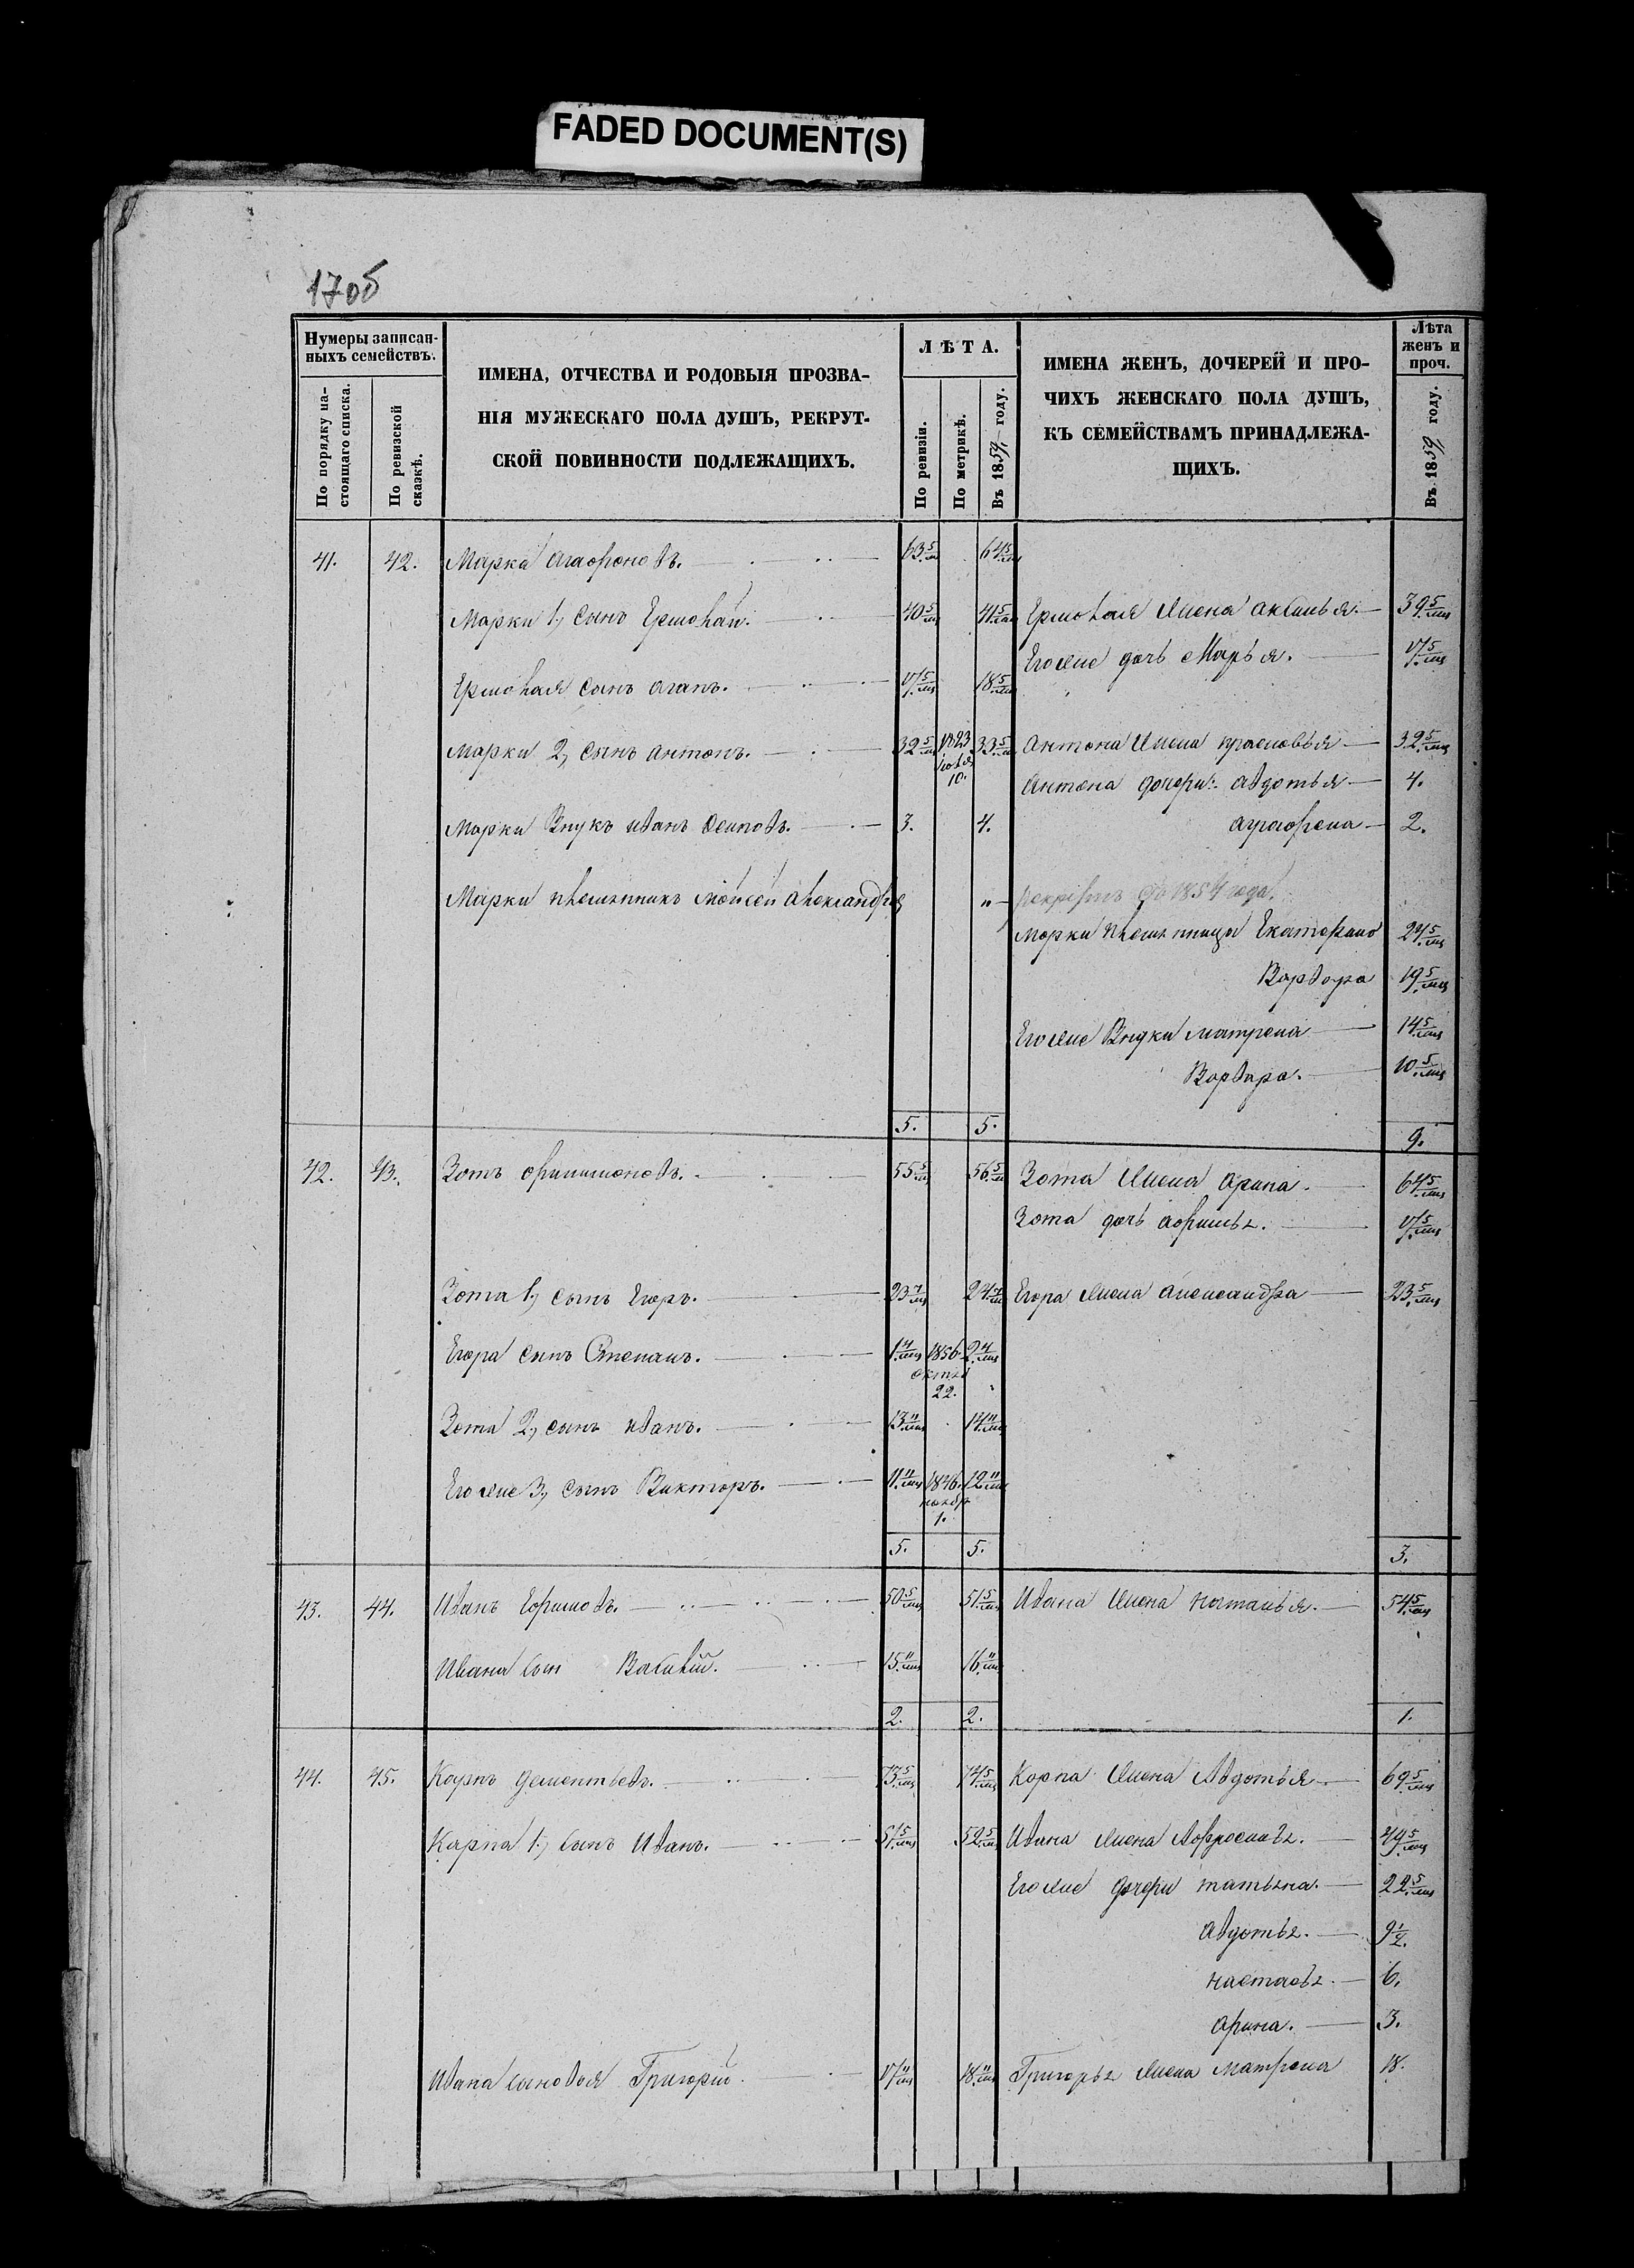 FADED DOCUMENT(S)
170б
Нумеры записан-
ныхъ семействъ.
По порядку на-
стоящаго списка.
По ревизской
сказкѣ.
ИМЕНА, ОТЧЕСТВА И РОДОВЫЯ ПРОЗВА-
НІЯ МУЖЕСКАГО ПОЛА ДУШЪ, РЕКРУТ-
СКОЙ ПОВИННОСТИ ПОДЛЕЖАЩИХЪ.
ЛѢТА.
По ревизіи.
По метрикѣ.
Въ 1859 году.
ИМЕНА ЖЕНЪ, ДОЧЕРЕЙ И ПРО-
ЧИХЪ ЖЕНСКАГО ПОЛА ДУШЪ,
КЪ СЕМЕЙСТВАМЪ ПРИНАДЛЕЖА-
ЩИХЪ.
Лѣта
женъ и
проч.
Въ 1859 году.
41. 42. Марка Агафоновъ. 63 5/мц 64 5/мц
Марки 1, сынъ Ермолай. 40 5/мц 41 5/мц Ермолая жена Аксинья. 39 5/мц
Его же дочь Марья. 17 5/мц
Ермолая сынъ Агапъ. 17 5/мц 18 5/мц
Марки 2, сынъ Антонъ. 32 5/мц 1823 10. 33 5/мц Антона жена Прасковья 32 5/мц
Антона дочери: Авдотья 4.
Марки Внукъ Иванъ Осиповъ. 3. 4. Аграфена 2.
Марки племянникъ Моисей Александровъ " рекрутъ въ 1854 года.
Марки племянницы Екатерина 24 5/мц
Варвара 19 5/мц
Его же Внуки Матрена 14 5/мц
Варвара. 10 5/мц
5. 5. 9.
42. 43. Зотъ Филимоновъ. 55 5/мц 56 5/мц Зота жена Арина. 64 5/мц
Зота дочь Афимья. 17 5/мц
Зота 1, сынъ Егоръ. 23 7/мц 24 7/мц Егора жена Александра 23 5/мц
Егора сынъ Степанъ. 1 4/мц 1856 октяб 22. 2 4/мц
Зота 2, сынъ Иванъ. 13 11/мц 14 11/мц
Его же 3, сынъ Викторъ. 11 11/мц 1846. ноябр 1. 12 11/мц
5. 5. 3.
43. 44. Иванъ Ефимовъ. 50 5/мц 51 5/мц Ивана жена Наталья. 54 5/мц
Ивана сын Василій. 15 11/мц 16 11/мц
2. 2. 1.
44. 45. Карпъ Дементьевъ. 73 5/мц 74 5/мц Карпа жена Авдотья. 69 5/мц
Карпа 1, сынъ Иванъ. 51 5/мц 52 5/мц Ивана жена Афросинья. 49 5/мц
Его же дочери Татьяна. 22 5/мц
Авдотья. 9 1/2.
Настасья. 6.
Арина. 3.
Ивана сыновья Григорій. 17 11/мц 18 11/мц Григорья жена Матрена 18.